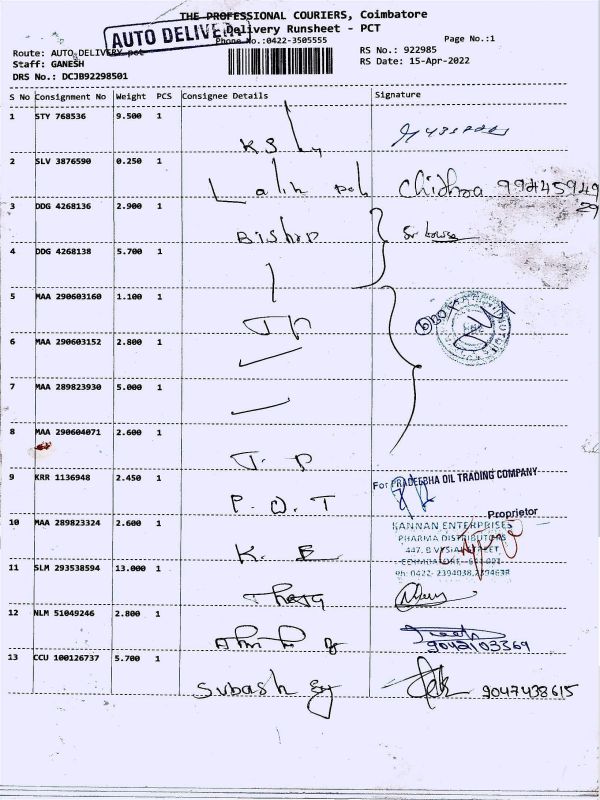 THE PROFESSIONAL COURIERS, Coimbatore
AUTO DELIVERY
Delivery Runsheet - PCT
Phone No.:0422-3505555
Page No.:1
Route: AUTO DELIVERY pot
RS No.: 922985
Staff: GANESH
RS Date: 15-Apr-2022
DRS No.: DCJB92298501
S No Consignment No Weight PCS Consignee Details Signature
1 STY 768536 9.500 1
K S
2 SLV 3876590 0.250 1
Chidhra 99445949
29
3 DDG 4268136 2.900 1
Bishop
4 DDG 4268138 5.700 1
5 MAA 290603160 1.100 1
J P
6 MAA 290603152 2.800 1
7 MAA 289823930 5.000 1
8 MAA 290604071 2.600 1
J. P
9 KRR 1136948 2.450 1
For PRADEEBHA OIL TRADING COMPANY
P. O. T
Proprietor
10 MAA 289823324 2.600 1
KANNAN ENTERPRISES
PHARMA DISTRIBUTORS
K. E
11 SLM 293538594 13.000 1
Ph: 0422- 2394038, 2394638
12 NLM 51049246 2.800 1
9042103369
13 CCU 100126737 5.700 1
Subash 9047438615